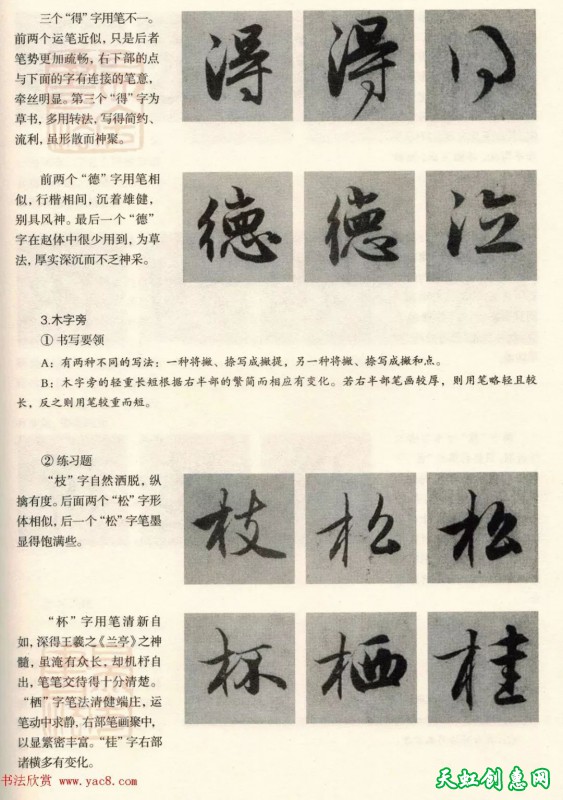 三个“得”字用笔不一。
前两个运笔近似，只是后者
笔势更加疏畅，右下部的点
与下面的字有连接的笔意，
牵丝明显。第三个“得”字为
草书，多用转法，写得简约、
流利，虽形散而神聚。
得 得 得
前两个“德”字用笔相
似，行楷相间，沉着雄健，
别具风神。最后一个“德”
字在赵体中很少用到，为草
法，厚实深沉而不乏神采。
德 德 德
3.木字旁
① 书写要领
A：有两种不同的写法：一种将撇、捺写成撇提，另一种将撇、捺写成撇和点。
B：木字旁的轻重长短根据右半部的繁简而相应有变化。若右半部笔画较厚，则用笔略轻且较
长，反之则用笔较重而短。
② 练习题
“枝”字自然洒脱，纵
擒有度。后面两个“松”字形
体相似，后一个“松”字笔墨
显得饱满些。
枝 松 松
“杯”字用笔清新自
如，深得王羲之《兰亭》之神
髓，虽淹有众长，却机杼自
出，笔笔交待得十分清楚。
“栖”字笔法清健端庄，运
笔动中求静，右部笔画聚中，
以显繁密丰富。“桂”字右部
诸横多有变化。
杯 栖 桂
书法欣赏 www.yac8.com
天虹创惠网